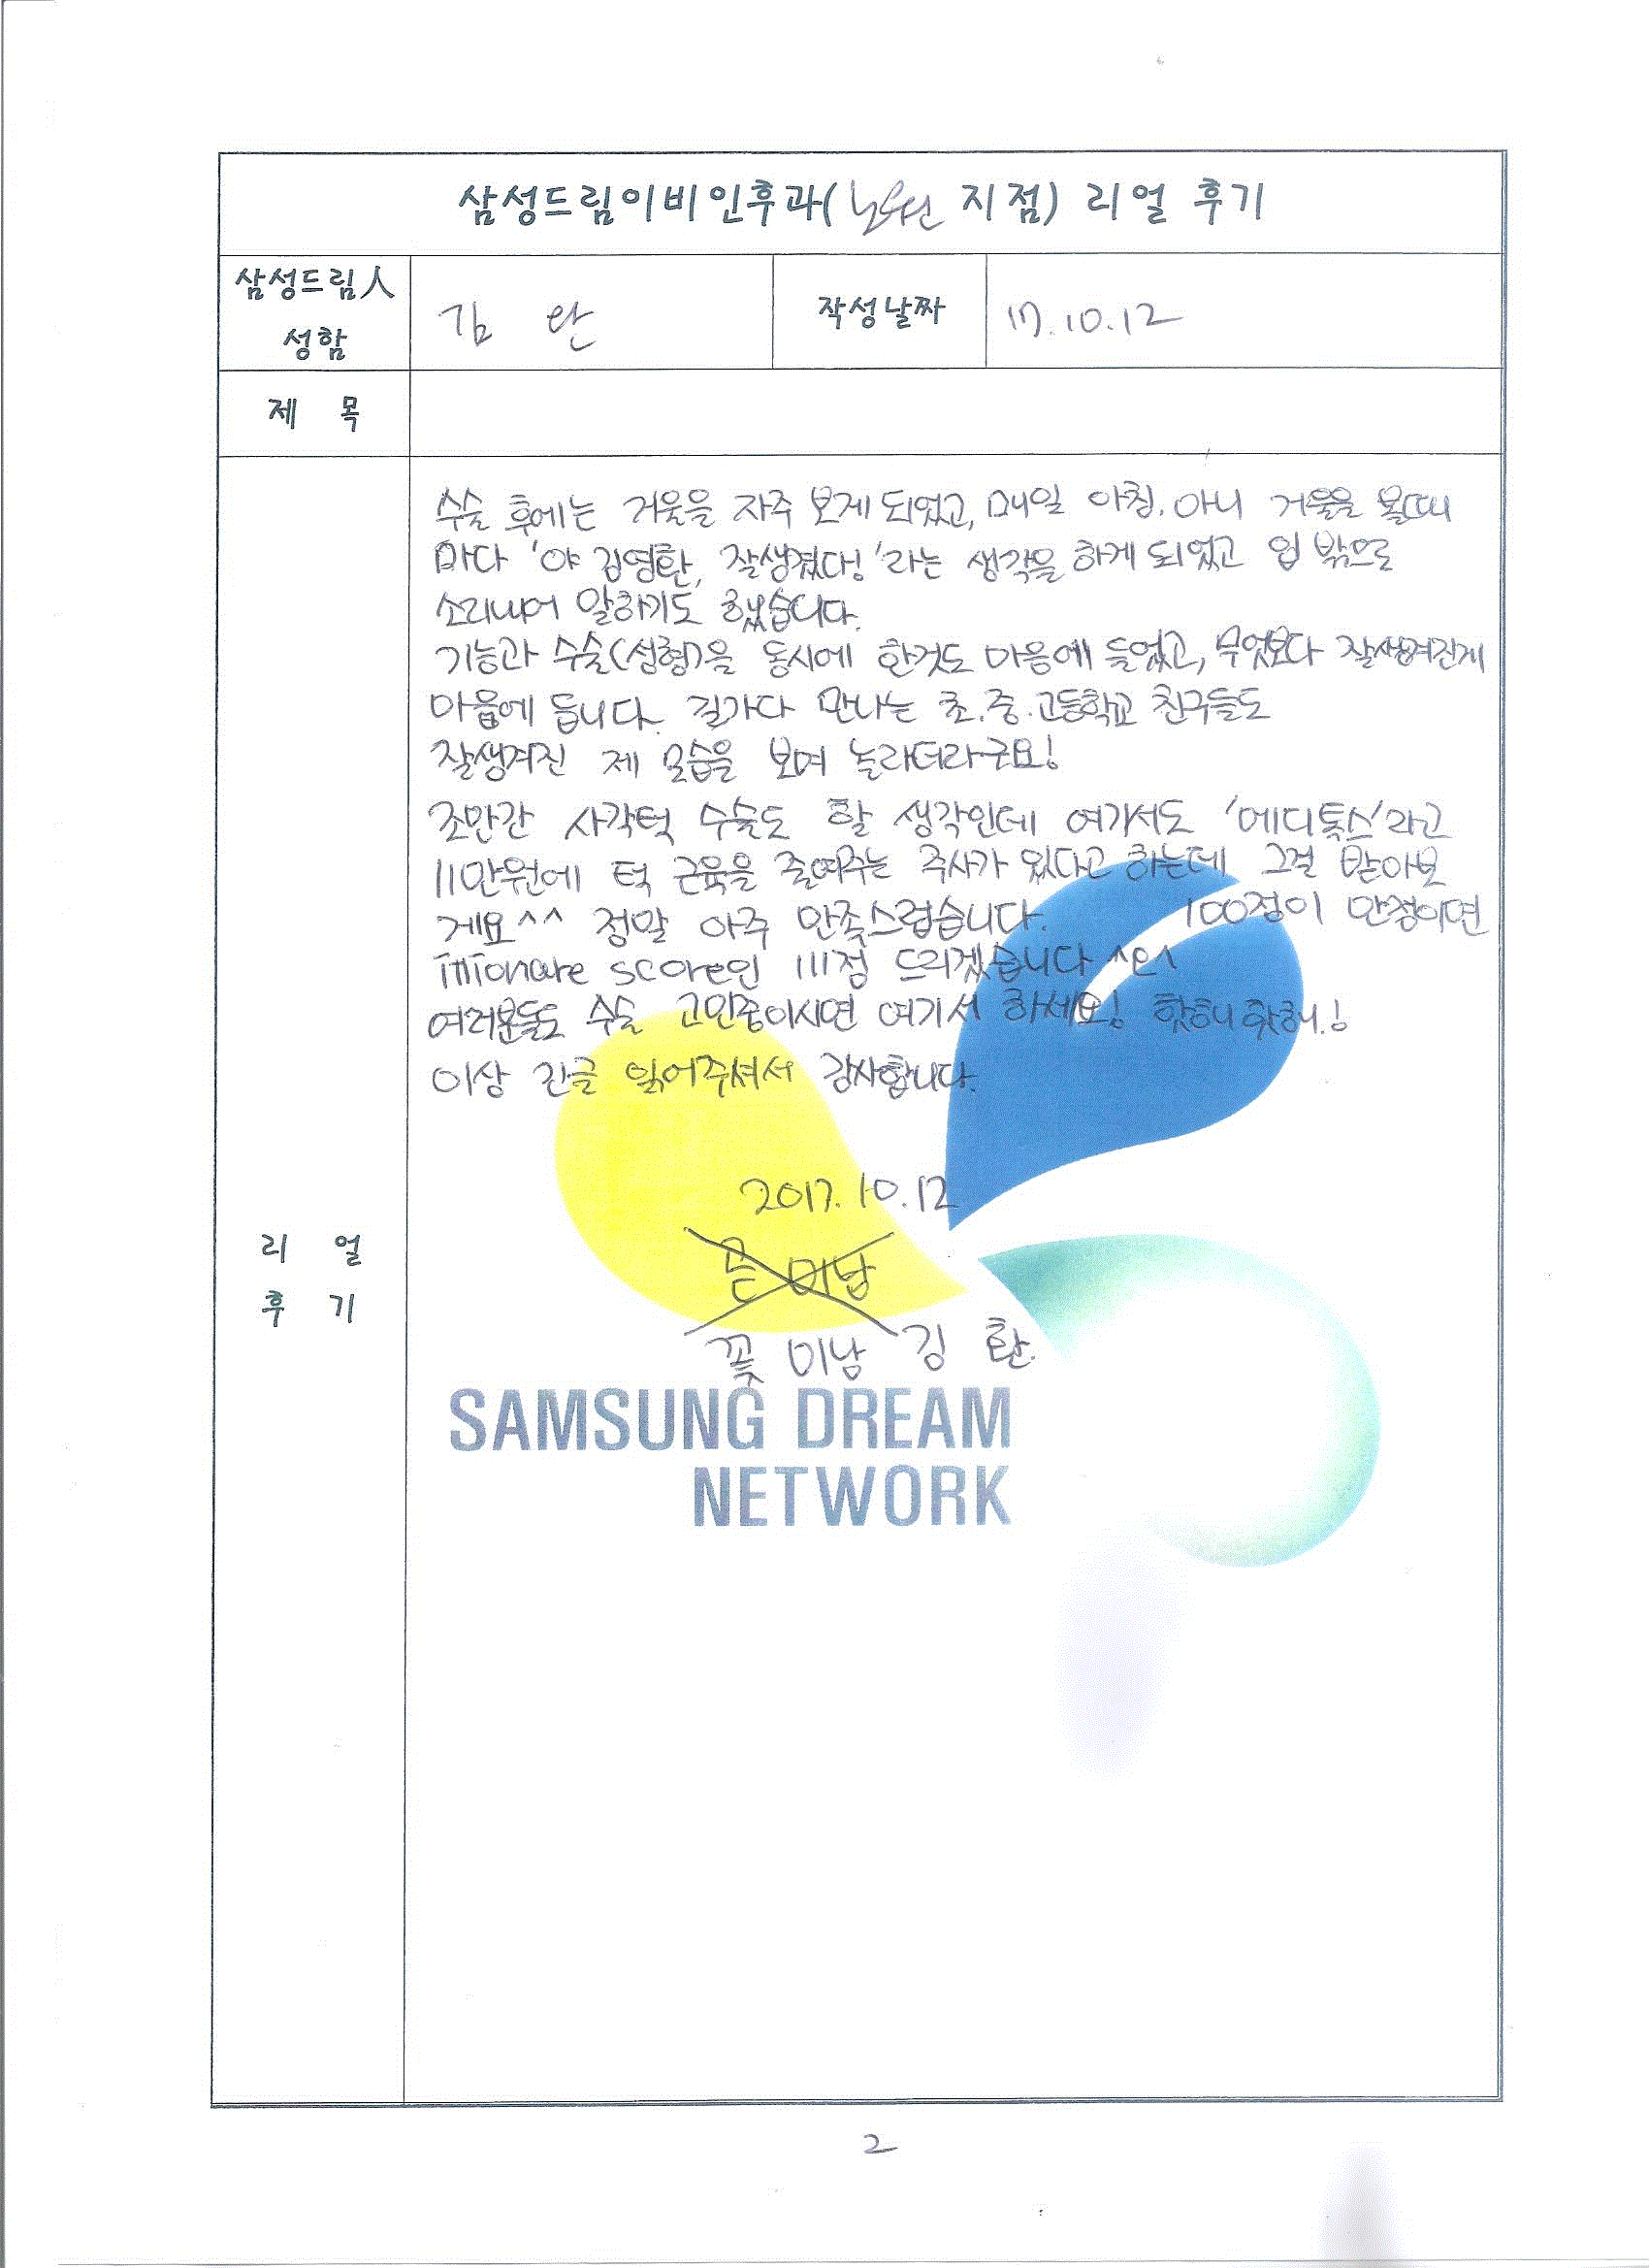 삼성드림이비인후과( 지점) 리얼 후기
삼성드림人
성함
김
작성날짜
17.10.12
제 목
수술 후에는 거울을 자주 보게 되었고, 매일 아침. 아니 거울을 볼때
마다 '야 김영환, 잘생겼다!'라는 생각을 하게 되었고 입 밖으로
소리내어 말하기도 했습니다.
기능과 수술(성형)을 동시에 한것도 마음에 들었고, 무엇보다 잘생겨진게
마음에 듭니다. 길가다 만나는 초.중.고등학교 친구들도
잘생겨진 제 모습을 보며 놀라더라구요!
조만간 사각턱 수술도 할 생각인데 여기서도 '메디톡스'라고
11만원에 턱 근육을 줄여주는 주사가 있다고 하는데 그걸 받아보
게요^^ 정말 아주 만족스럽습니다. 100점이 만점이면
illionare score인 111점 드리겠습니다 ^o^
여러분들도 수술 고민중이시면 여기서 하세요! 핫해핫해.!
이상 긴글 읽어주셔서 감사합니다.
2017.10.12
미남
꽃 미남 김 환.
리 얼
후 기
SAMSUNG DREAM
NETWORK
2